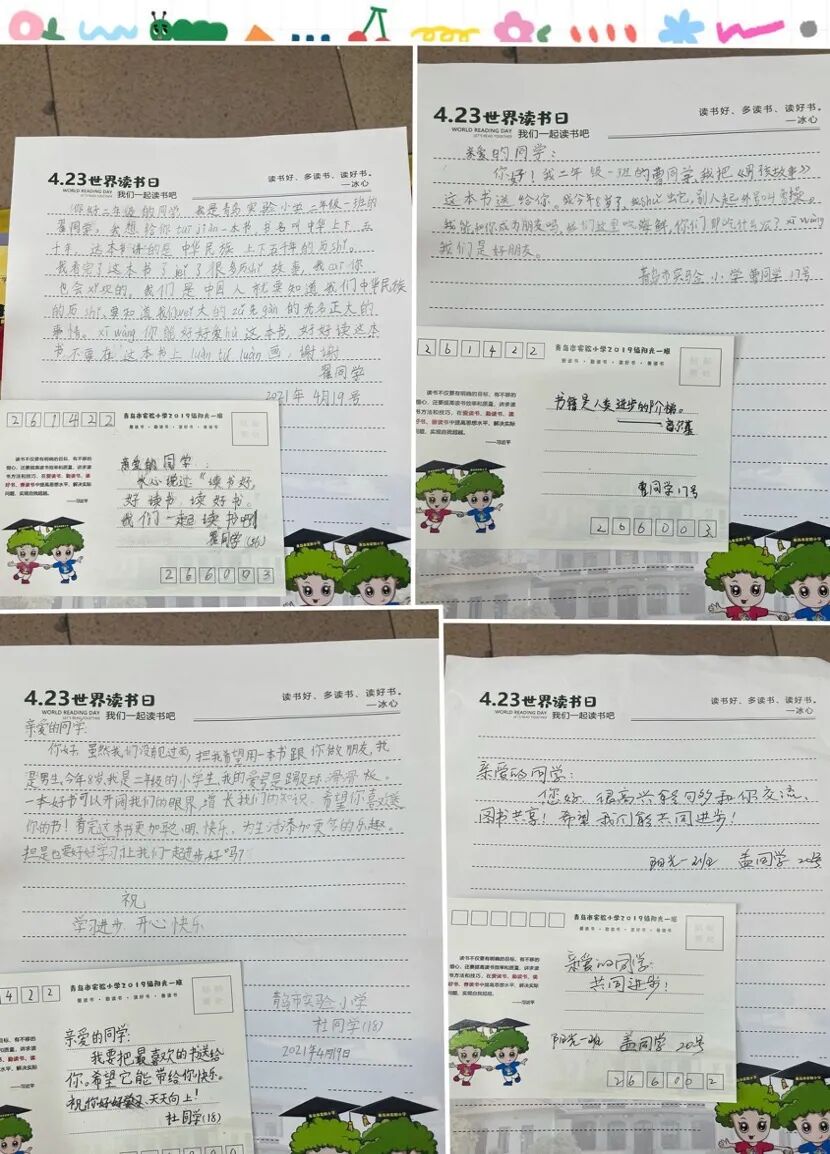 4.23世界读书日
WORLD READING DAY
LET'S READ TOGETHER
我们一起读书吧
读书好、多读书、读好书。
—冰心
你好二年级的同学，我是青岛实验小学二年级一班的
翟同学，我想给你tuī jiàn一本书，书名叫中华上下五
千年，这本书讲的是中华民族上下五千年的历shǐ。
我看完了这本书了 了很多历shǐ故事，我 你
也会 欢的。我们是中国人就要知道我们中华民族
的历shǐ，要知道我们 大的 的光名正大的
事情。xī wàng你能好好爱hù这本书，好好读这本
书不要在这本书上luàn tú luàn画，谢谢
翟同学
2021年4月19号
261422
青岛市实验小学2019级阳光一班
爱读书·勤读书·读好书·善读书
贴邮票处
读书不仅要有明确的目标、有不移的
恒心，还要提高读书效率和质量，讲求读
书方法和技巧，在爱读书、勤读书、读
好书、善读书中提高思想水平、解决实际
问题、实现自我超越。
——习近平
亲爱的同学：
冰心说过“读书好，
好读书，读好书。
我们一起读书吧
翟同学
266003
4.23世界读书日
WORLD READING DAY
LET'S READ TOGETHER
我们一起读书吧
读书好、多读书、读好书。
—冰心
亲爱的同学：
你好！我二年级一班的曹同学，我把《男孩故事》
这本书送给你。我今年8岁了，我shǔ蛇，别人起外号叫曹操。
我能和你成为朋友吗，我们这里吃海鲜，你们那吃什么？xī wàng
我们是好朋友。
青岛市实验小学曹同学17号
261422
青岛市实验小学2019级阳光一班
爱读书·勤读书·读好书·善读书
贴邮票处
读书不仅要有明确的目标、有不移的
恒心，还要提高读书效率和质量，讲求读
书方法和技巧，在爱读书、勤读书、读
好书、善读书中提高思想水平、解决实际
问题、实现自我超越。
——习近平
书籍是人类进步的阶梯。
——高尔基
曹同学17号
266003
4.23世界读书日
WORLD READING DAY
LET'S READ TOGETHER
我们一起读书吧
读书好、多读书、读好书。
—冰心
亲爱的同学：
你好，虽然我们没有见过面，担我希望用一本书跟你做朋友，我
是男生，今年8岁，我是二年级的小学生，我的爱号是踢球、滑滑板。
一本好书可以开阔我们的眼界，增长我们的知识，希望你喜欢送
你的书！看完这本书更加聪明、快乐，为生活添加更多的乐趣。
担是也要好好学习，让我们一起进步好吗？
祝
学习进步 开心快乐
青岛市实验小学
杜同学(18)
2021年4月19日
422
青岛市实验小学2019级阳光一班
爱读书·勤读书·读好书·善读书
贴邮票处
亲爱的同学：
我要把最喜欢的书送给
你。希望它能带给你快乐。
祝你好好学习，天天向上！
杜同学(18)
4.23世界读书日
WORLD READING DAY
LET'S READ TOGETHER
我们一起读书吧
读书好、多读书、读好书。
—冰心
亲爱的同学：
您好，很高兴能够和你交流，
图书共享！希望我们能共同进步！
阳光一班 孟同学 20号
青岛市实验小学2019级阳光一班
爱读书·勤读书·读好书·善读书
贴邮票处
读书不仅要有明确的目标、有不移的
恒心，还要提高读书效率和质量，讲求读
书方法和技巧，在爱读书、勤读书、读
好书、善读书中提高思想水平、解决实际
问题、实现自我超越。
——习近平
亲爱的同学：
共同进步！
阳光一班 孟同学 20号
266002